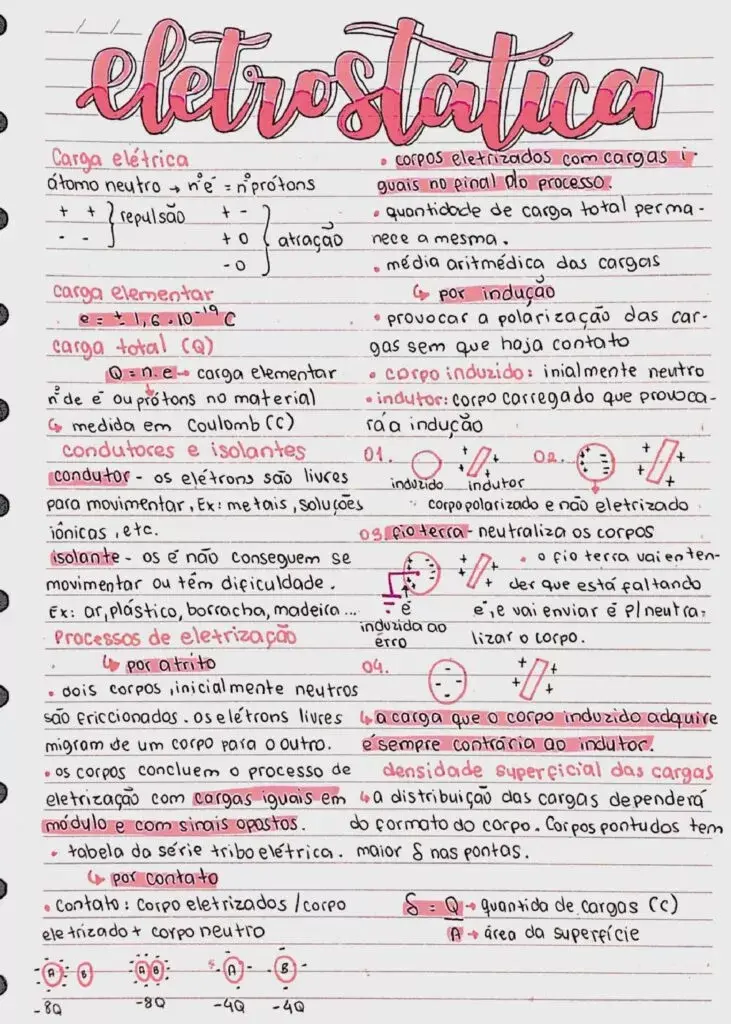 eletrostática
Carga elétrica
átomo neutro → nº é = nº prótons
+ + } repulsão
- -
+ - } atração
+ 0
- 0
carga elementar
e = ± 1,6 · 10⁻¹⁹ C
carga total (Q)
Q = n. e → carga elementar
nº de é ou prótons no material
↳ medida em Coulomb (C)
condutores e isolantes
condutor - os elétrons são livres
para movimentar, Ex: metais, soluções
iônicas, etc.
isolante - os é não conseguem se
movimentar ou têm dificuldade.
Ex: ar, plástico, borracha, madeira...
Processos de eletrização
↳ por atrito
• dois corpos, inicialmente neutros
são friccionados. os elétrons livres
migram de um corpo para o outro.
• os corpos concluem o processo de
eletrização com cargas iguais em
módulo e com sinais opostos.
• tabela da série triboelétrica.
↳ por contato
• contato: corpo eletrizados / corpo
eletrizado + corpo neutro
A B AB A B
-8Q -8Q -4Q -4Q
• corpos eletrizados com cargas i
guais no final do processo.
• quantidade de carga total perma-
nece a mesma.
• média aritmédica das cargas
↳ por indução
• provocar a polarização das car-
gas sem que haja contato
• corpo induzido: inialmente neutro
• indutor: corpo carregado que provoca-
rá a indução
01. 02.
induzido indutor
corpo polarizado e não eletrizado
03. fio terra - neutraliza os corpos
• o fio terra vai enten-
der que está faltando
é, e vai enviar é p/ neutra-
lizar o corpo.
é
induzida ao
erro
04.
↳ a carga que o corpo induzido adquire
é sempre contrária ao indutor.
densidade superficial das cargas
↳ a distribuição das cargas dependerá
do formato do corpo. Corpos pontudos tem
maior δ nas pontas.
δ = Q → quantida de cargas (C)
A → área da superfície